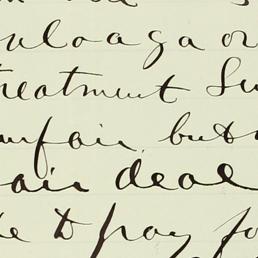 uloaga or
treatment Su
unfair, but
air deal
e to pay fo